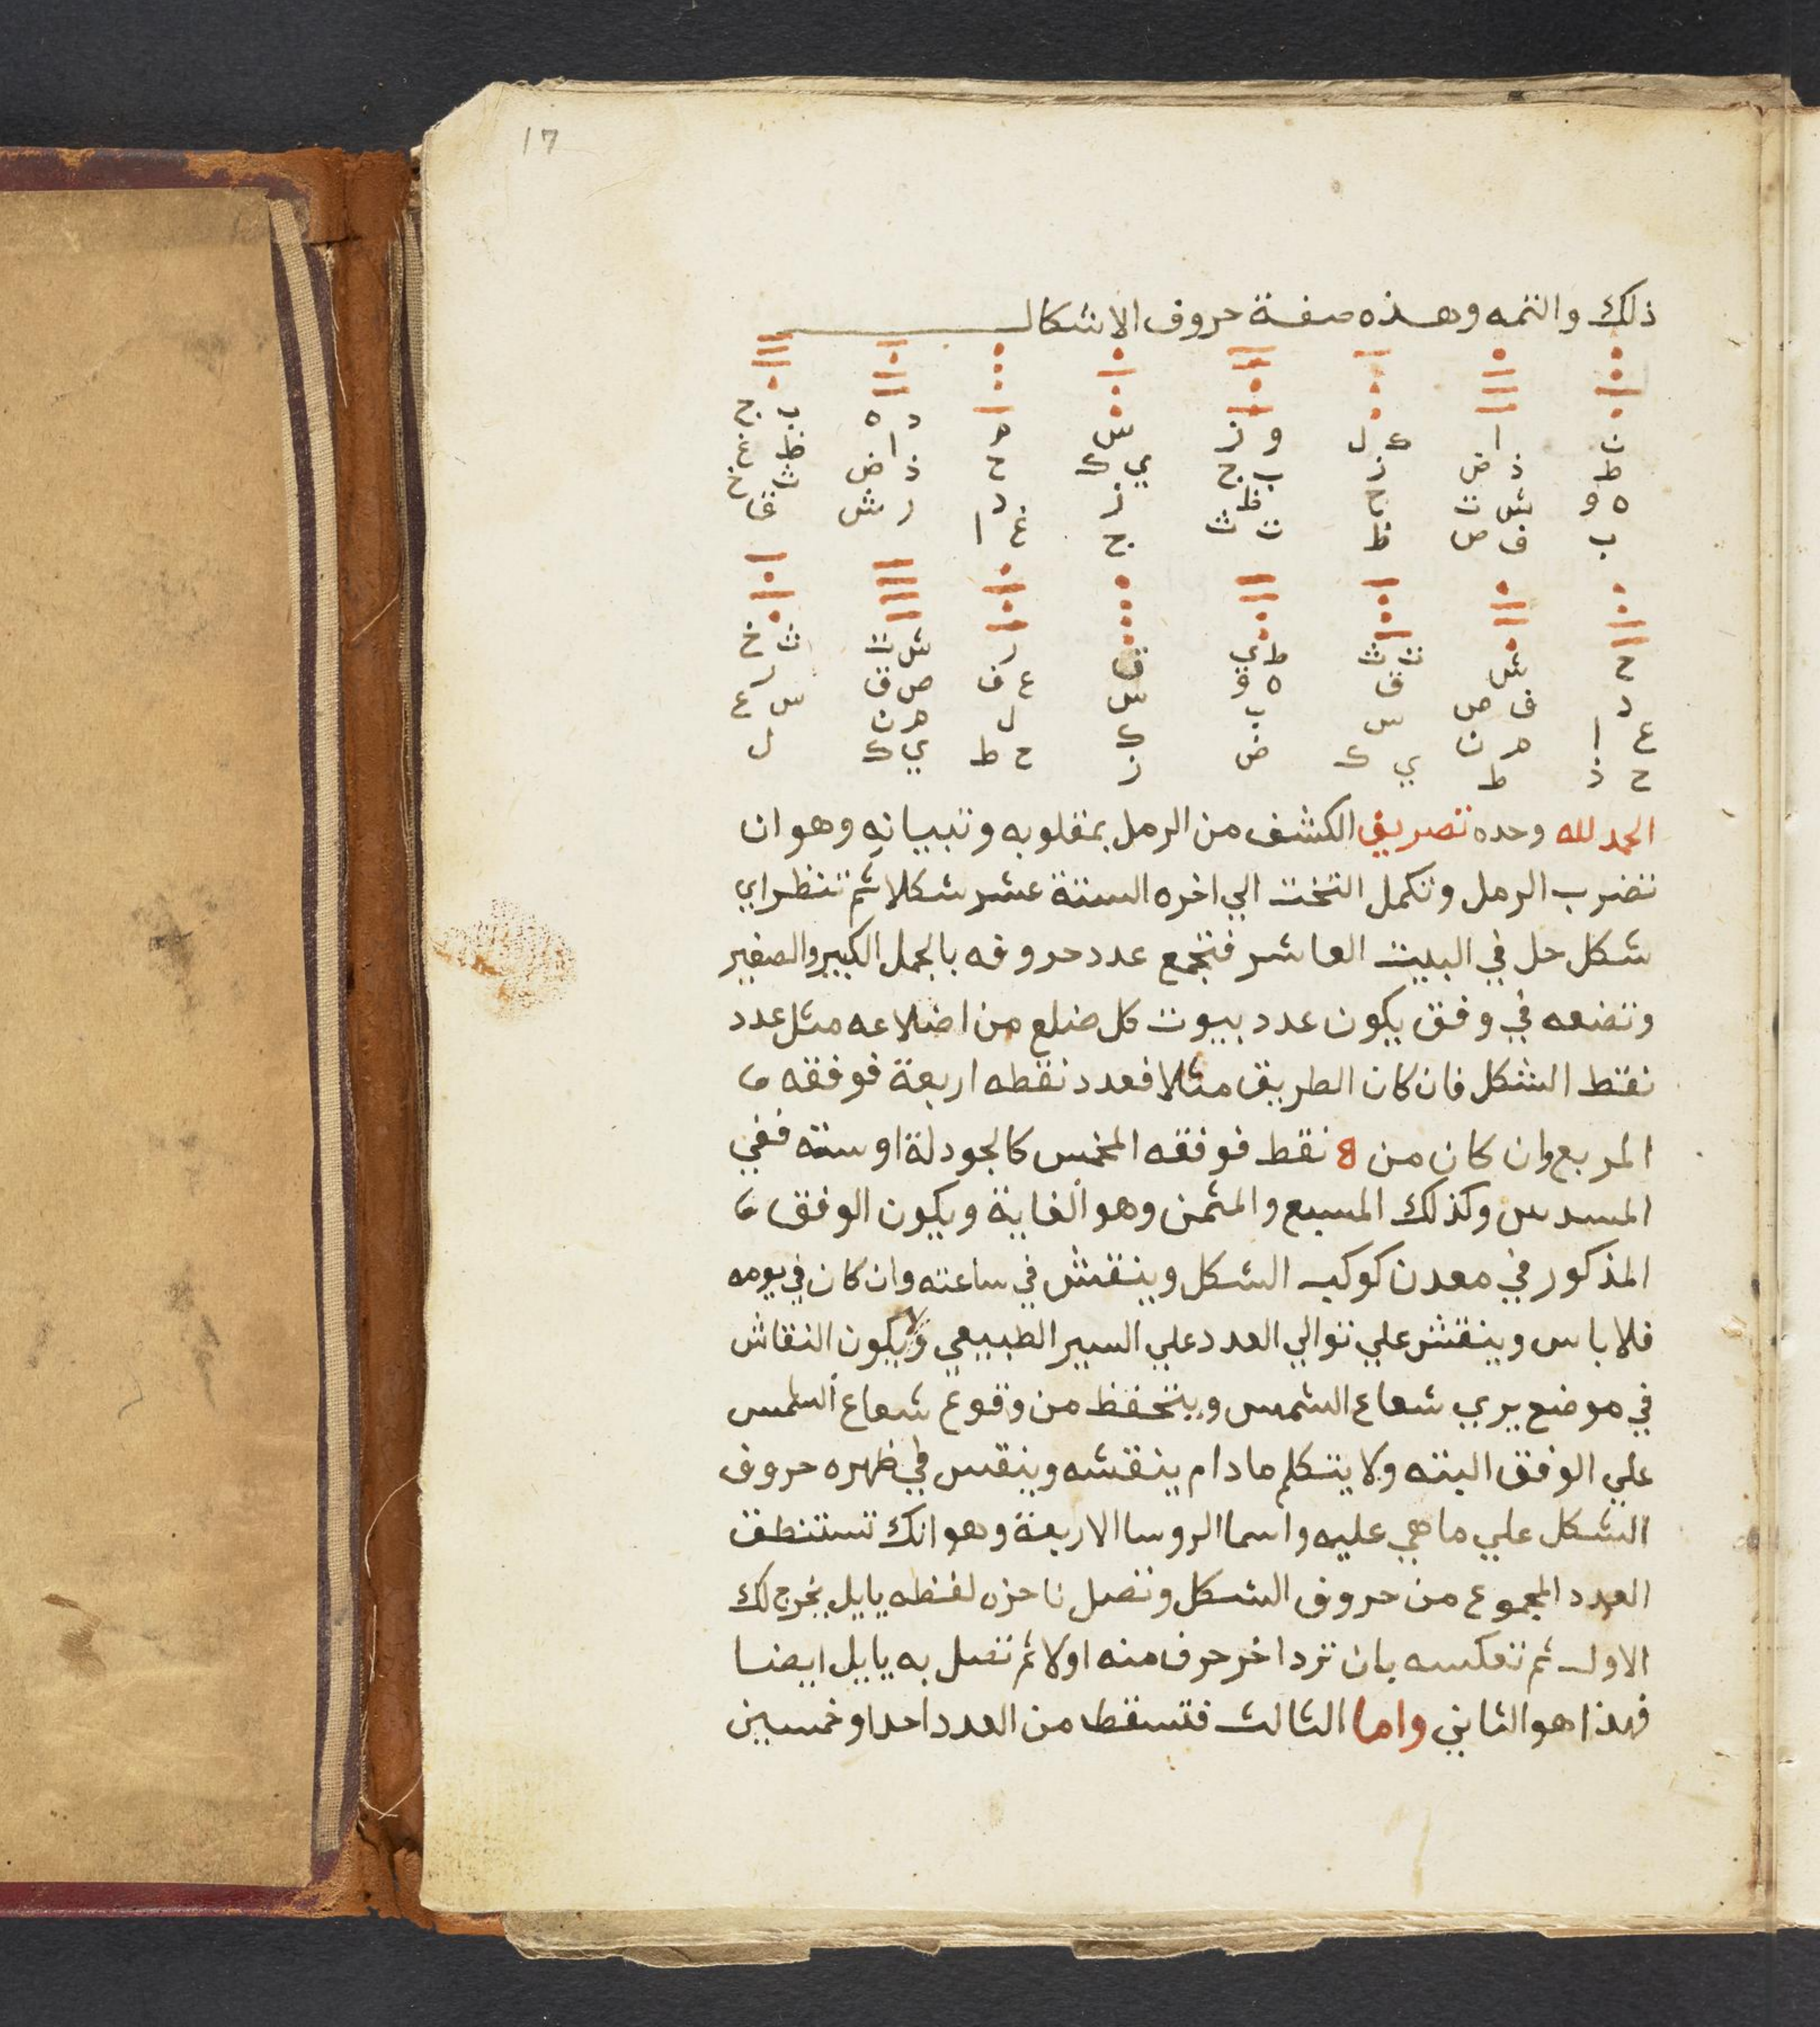 17
ذلك والتمه وهذه صفة حروف الاشكال
ن ا ك ل و ز س م د ه ب ج
ط ذ ض ز ب ج ي ك ح ذ ا ض ظ غ
ه و ش ت ح ظ ز د ر ش ث خ
ب ف ص ظ ت ث ج غ ا ق
ح ش ت ث ط ي ق ر ش ت ث خ
د ف ص ق ه و س ع ف ص ق ر
ع ا م ن س ب ك ل م ن س ع
ح ذ ط ي ك ض ز ح ط ي ك ل
الحمد لله وحده تصريف الكشف من الرمل بمقلوبه وتبيانه وهو ان
تضرب الرمل وتكمل التخت الي اخره الستة عشر شكلا ثم تنظر اي
شكل حل في البيت العاشر فتجمع عدد حروفه بالجمل الكبير والصغير
وتضعه في وفق يكون عدد بيوت كل ضلع من اضلاعه مثل عدد
نقط الشكل فان كان الطريق مثلا فعدد نقطه اربعة فوفقه
المربع وان كان من 8 نقط فوفقه المخمس كالجودلة او ستة ففي
المسدس وكذلك المسبع والمثمن وهو الغاية ويكون الوفق
المذكور في معدن كوكب الشكل وينقش في ساعته وان كان في يومه
فلا باس وينقش علي توالي العدد علي السير الطبيعي ولا يكون النقاش
في موضع يري شعاع الشمس ويتحفظ من وقوع شعاع الشمس
علي الوفق البته ولا يتكلم ما دام ينقشه وينقس في ظهره حروف
الشكل علي ما هي عليه واسما الروسا الاربعة وهو انك تستنطق
العدد المجموع من حروف الشكل وتصل باخره لفظه يايل يخرج لك
الاول ثم تعكسه بان ترد اخر حرف منه اولا ثم تصل به يايل ايضا
فهذا هو الثاني واما الثالث فتسقط من العدد احدا وخمسين